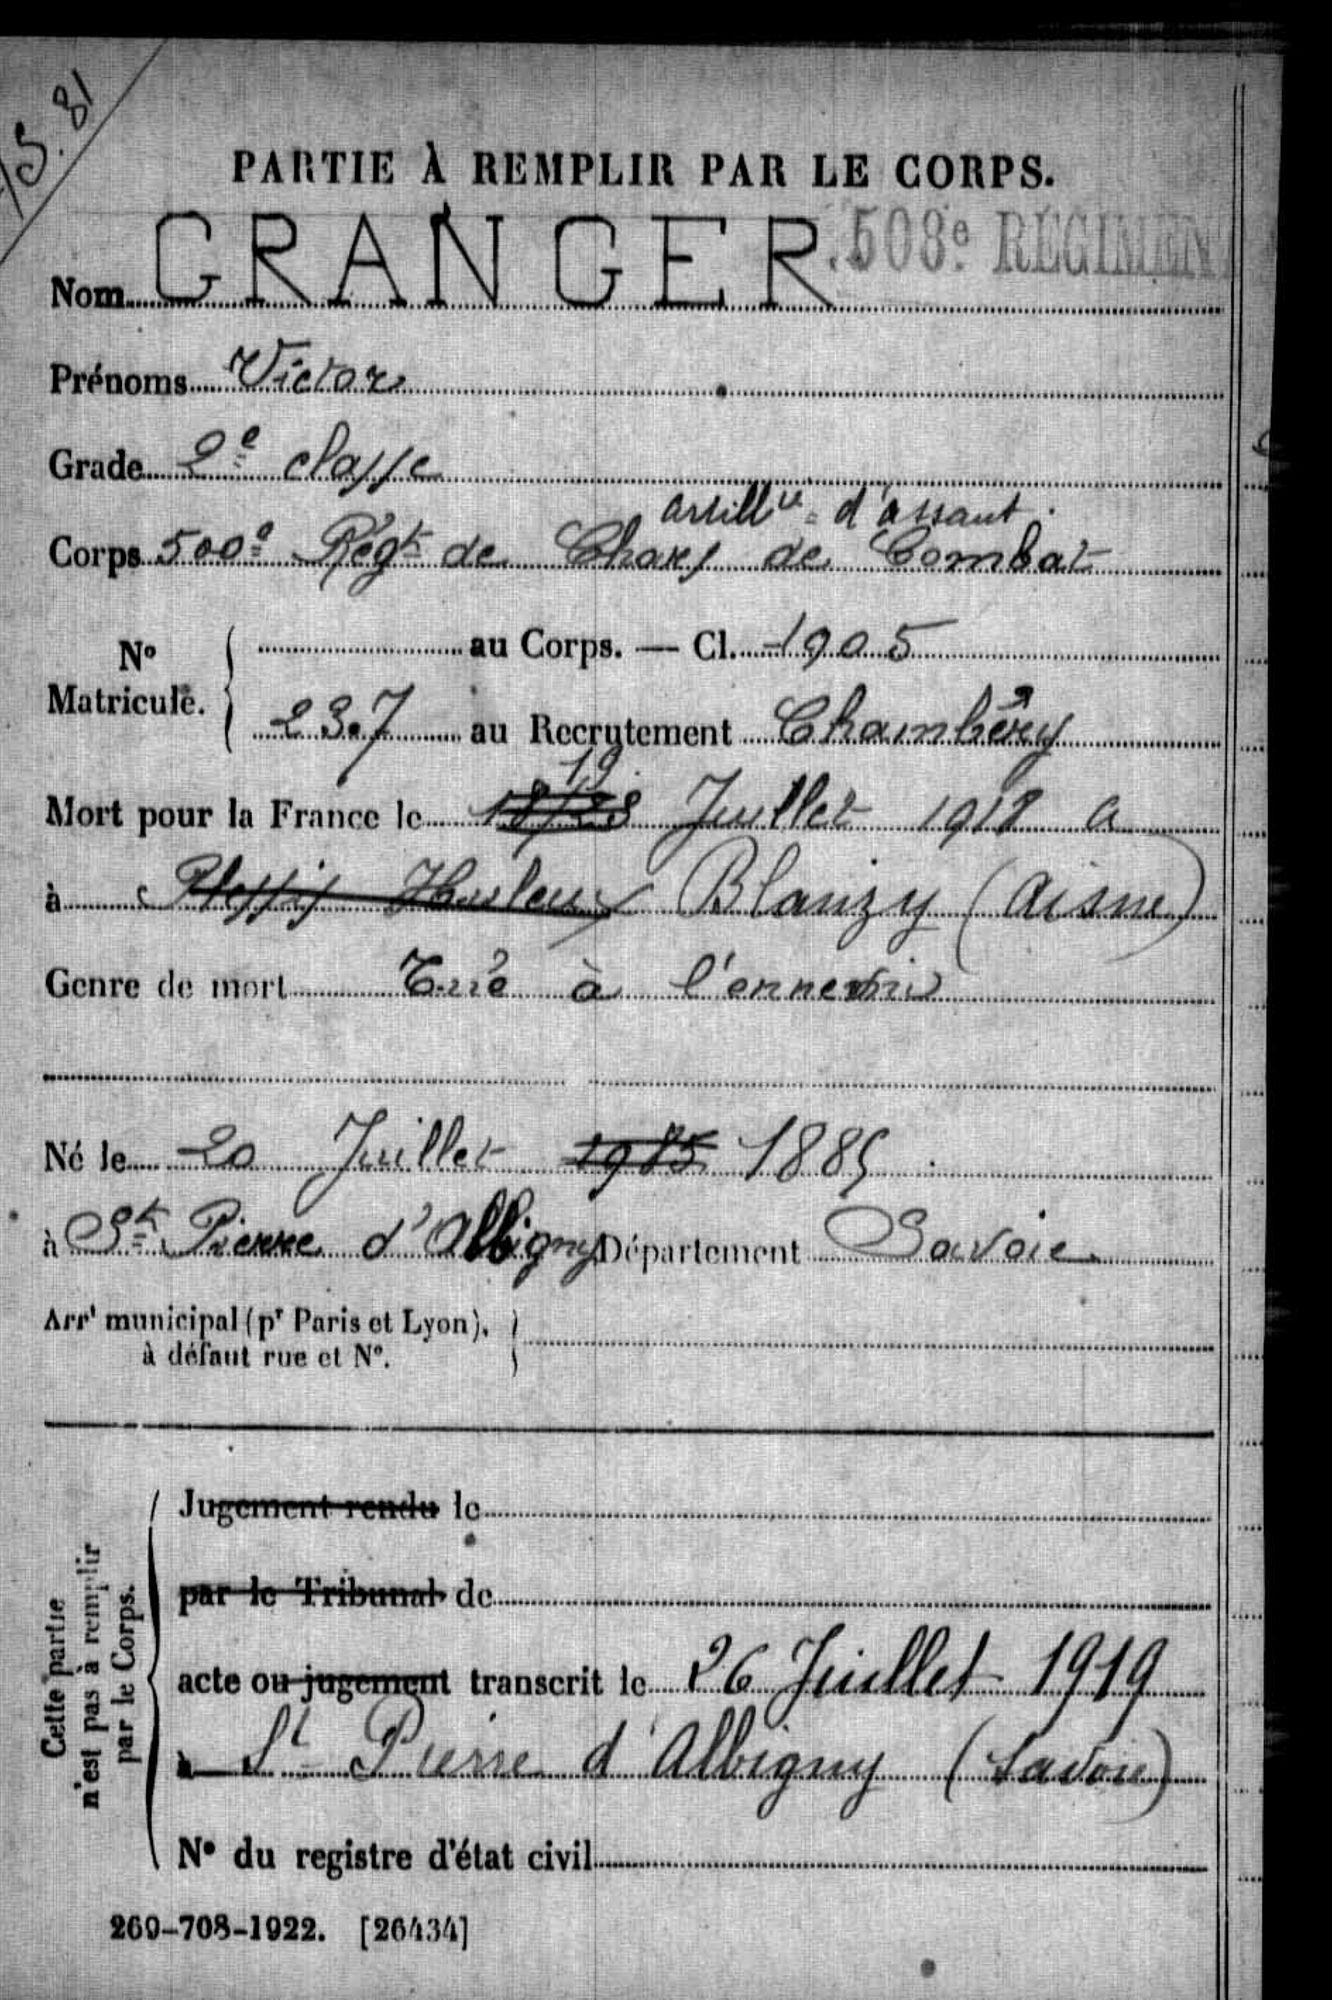 PARTIE À REMPLIR PAR LE CORPS.
508e REGIMEN
Nom GRANGER
Prénoms Victor
Grade 2e classe
artillie d'assaut.
Corps 500e Régt de Chars de Combat
No Matricule.
au Corps. — Cl. 1905
2307 au Recrutement Chambéry
19
Mort pour la France le 18/28 Juillet 1918 a
à Plessis Huleux Blanzy (Aisne)
Genre de mort Tué à l'ennemi
Né le 20 Juillet 1985 1885
à St Pierre d'Albigny Département Savoie
Arrt municipal (pr Paris et Lyon),
à défaut rue et No.
Cette partie
n'est pas à remplir
par le Corps.
Jugement rendu le
par le Tribunal de
acte ou jugement transcrit le 26 Juillet 1919
à St Pierre d'Albigny (Savoie)
No du registre d'état civil
269-708-1922. [26434]